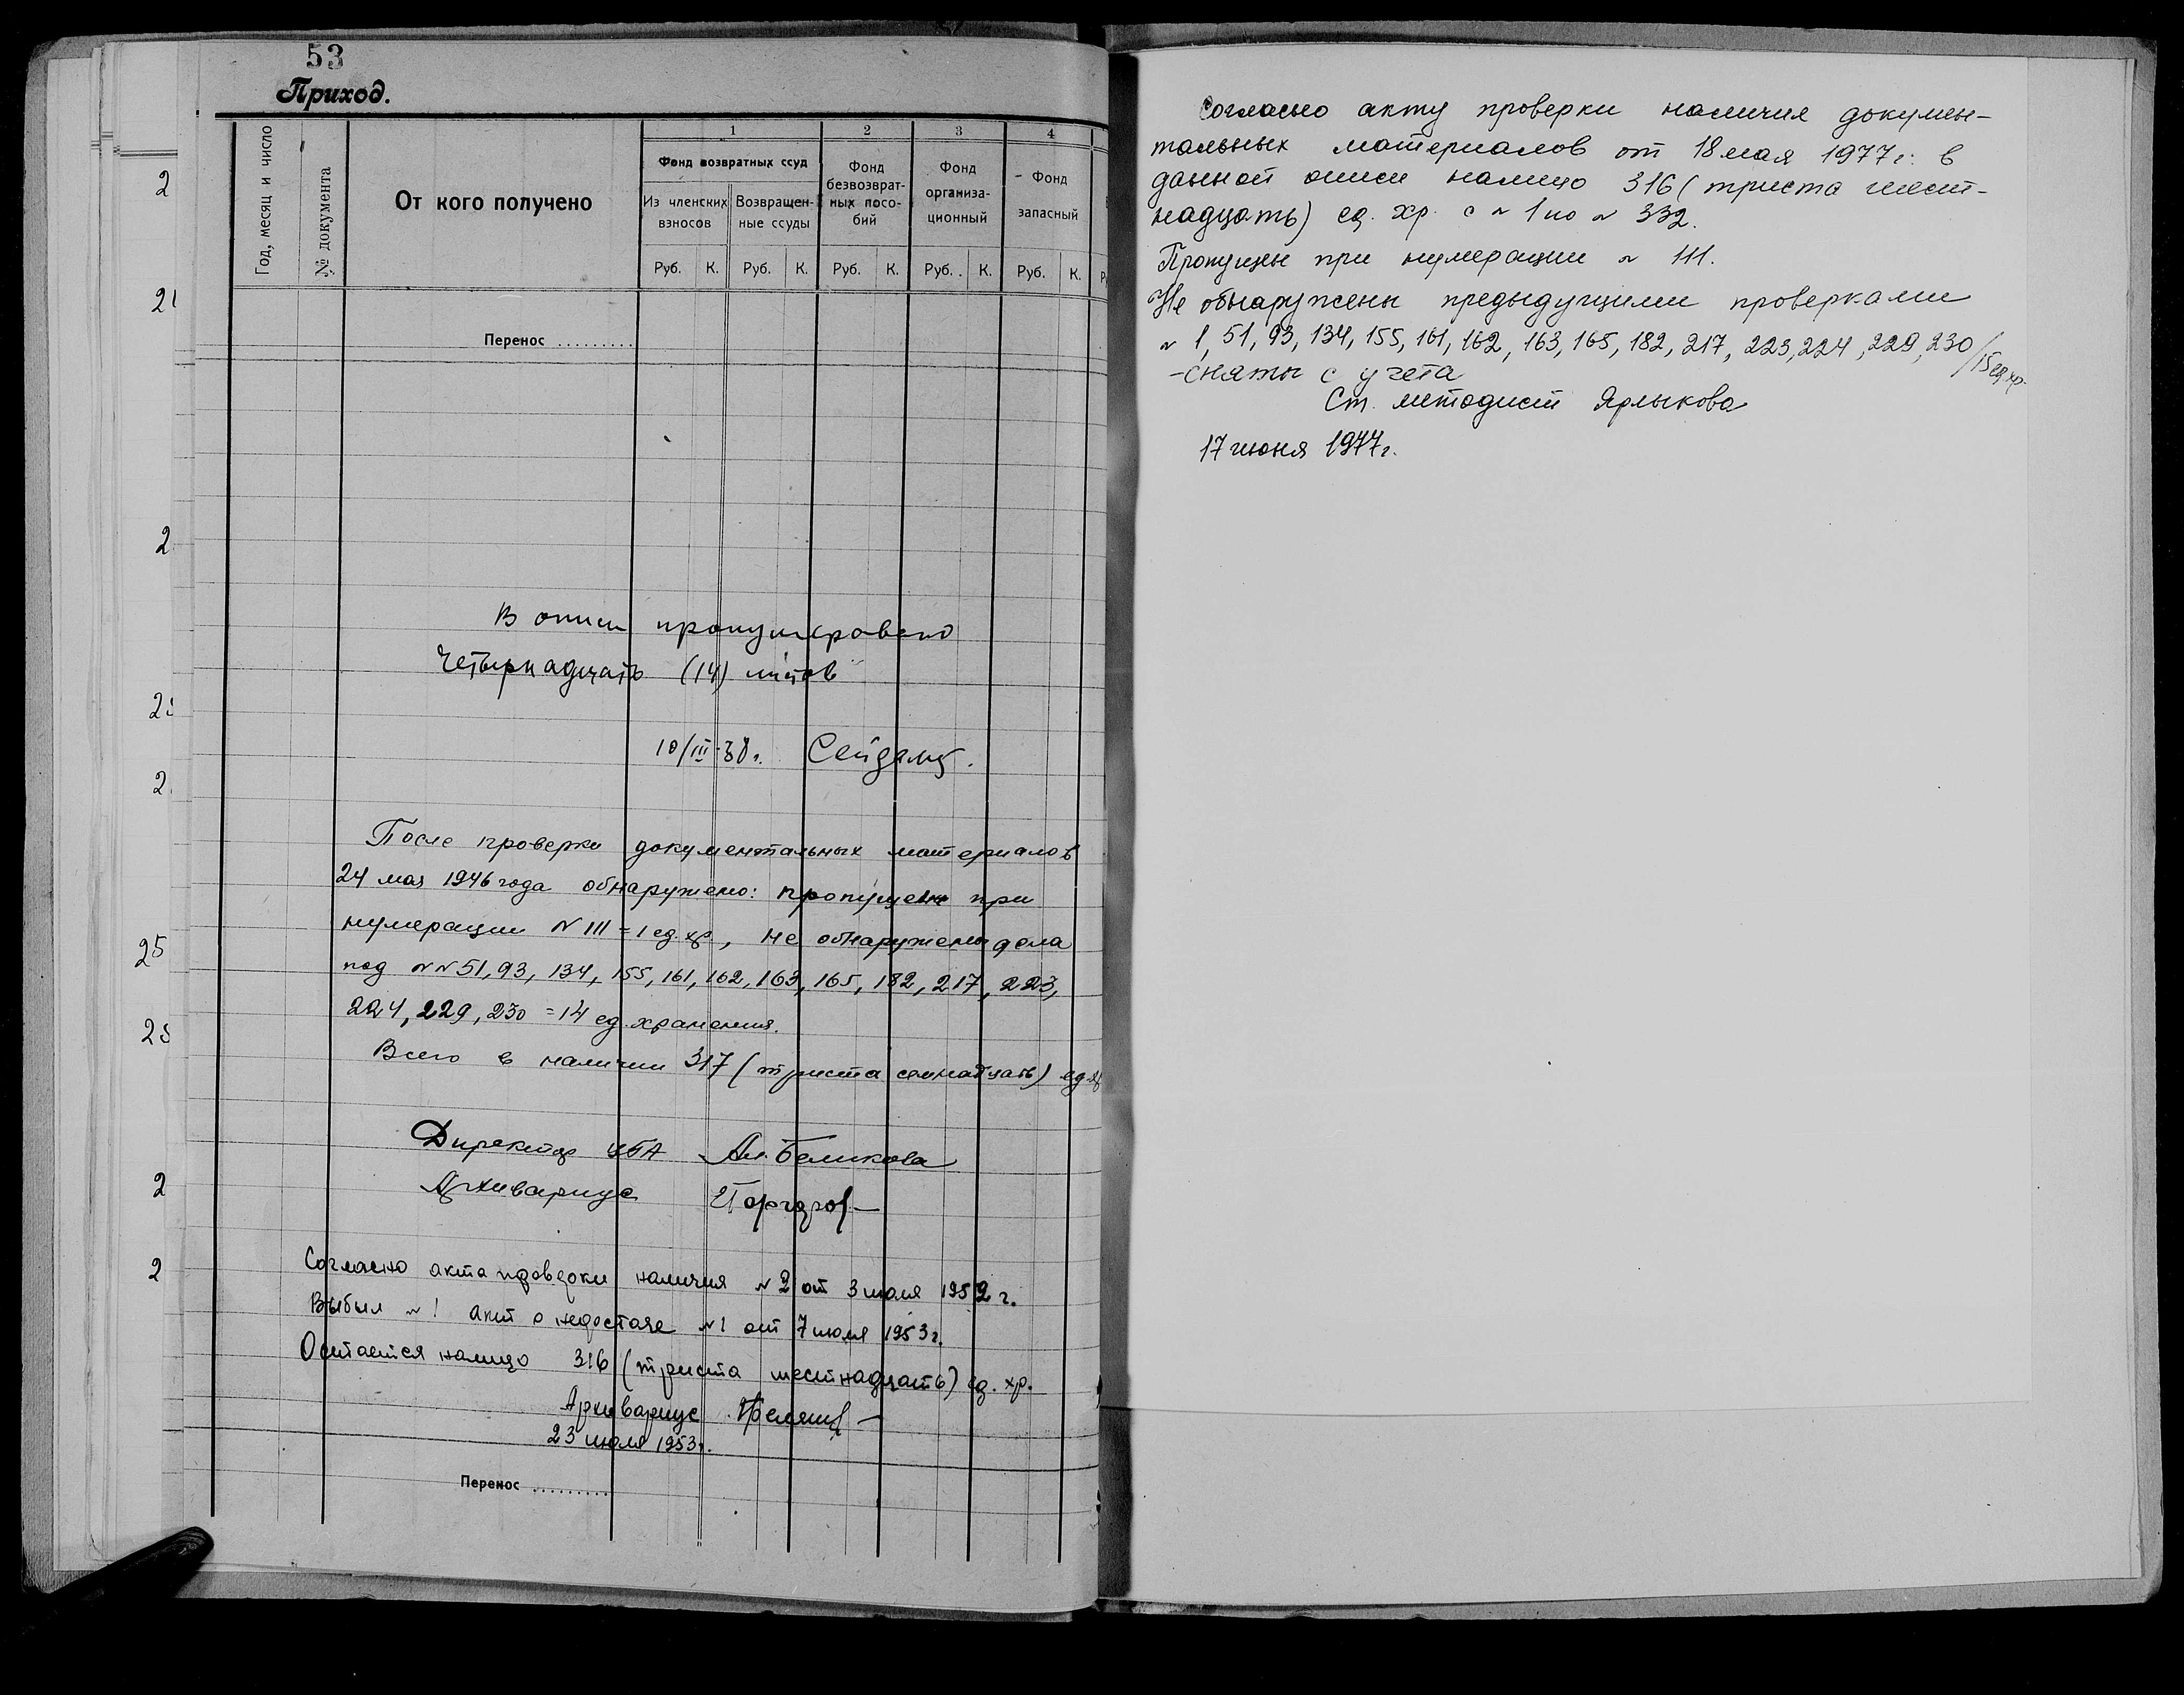 53
Приход.
Год, месяц и число
№ документа
От кого получено
1
Фонд возвратных ссуд
Из членских взносов
Возвращен-
ные ссуды
2
Фонд
безвозврат-
ных посо-
бий
3
Фонд
организа-
ционный
4
Фонд
запасный
Руб. К. Руб. К. Руб. К. Руб. К. Руб. К.
Перенос .........
В описи пронумеровано
четырнадцать (14) листов
10/III-38 г.
После проверки документальных материалов
24 мая 1946 года обнаружено: пропущен при
нумерации N 111 = 1 ед. хр., не обнаружены дела
под NN 51, 93, 134, 155, 161, 162, 163, 165, 182, 217, 223,
224, 229, 230 = 14 ед. хранения.
Всего в наличии 317 (триста семнадцать) ед. х
Директор Ал. Беликова
Архивариус
Согласно акта проверки наличия N 2 от 3 июля 1952 г.
Выбыл N 1 акт о недостаче N 1 от 7 июля 1953 г.
Остается налицо 316 (триста шестнадцать) ед. хр.
Архивариус
23 июля 1953 г.
Перенос .........
2
21
2
2
2
25
2
2
2
Согласно акту проверки наличия докумен-
тальных материалов от 18 мая 1977 г. в
данной описи налицо 316 (триста шест-
надцать) ед. хр. с N 1 по N 332.
Пропущен при нумерации N 111.
Не обнаружены предыдущими проверками
N 1, 51, 93, 134, 155, 161, 162, 163, 165, 182, 217, 223, 224, 229, 230 /15 ед. хр.
- сняты с учета
Ст. методист Ярлыкова
17 июня 1977 г.